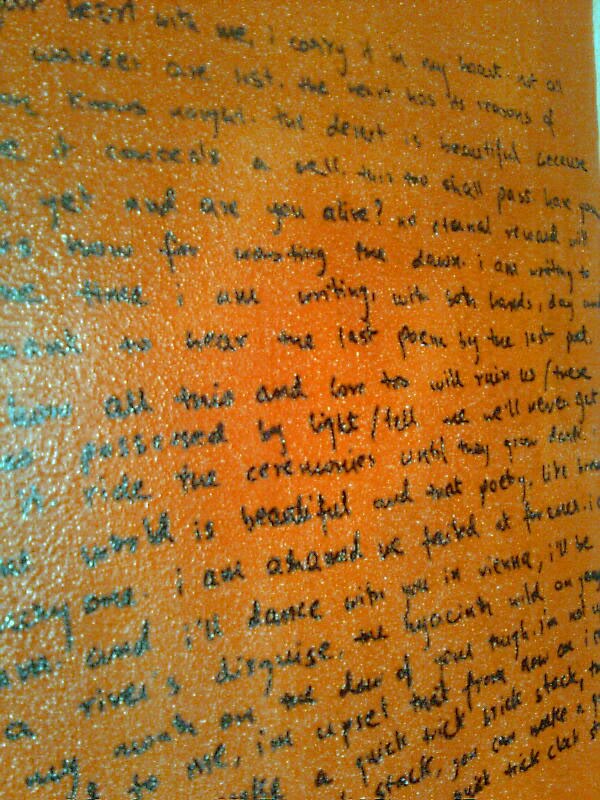 your heart with me, i carry it in my heart. not all
wander are lost. the heart has its reasons of
knows naught. the desert is beautiful because
it conceals a well. this too shall pass have you
yet and are you alive? no eternal reward will
us now for wasting the dawn. i am writing to
time i am writing, with both hands, day and
want to hear the last poem by the last poet.
how all this and love too will ruin us / these
possessed by light / tell me we'll never get
ride the ceremonies until they grow dark.
that world is beautiful and that poetry, like bread
everyone. i am ashamed we failed at
and i'll dance with you in vienna, i'll be
a river's disguise. the hyacinth wild on
my mouth on the dew of your thigh. i'm not
to me, i'm upset that from now on i
make a quick trick brick stack,
stack, you can make a
quick trick clock